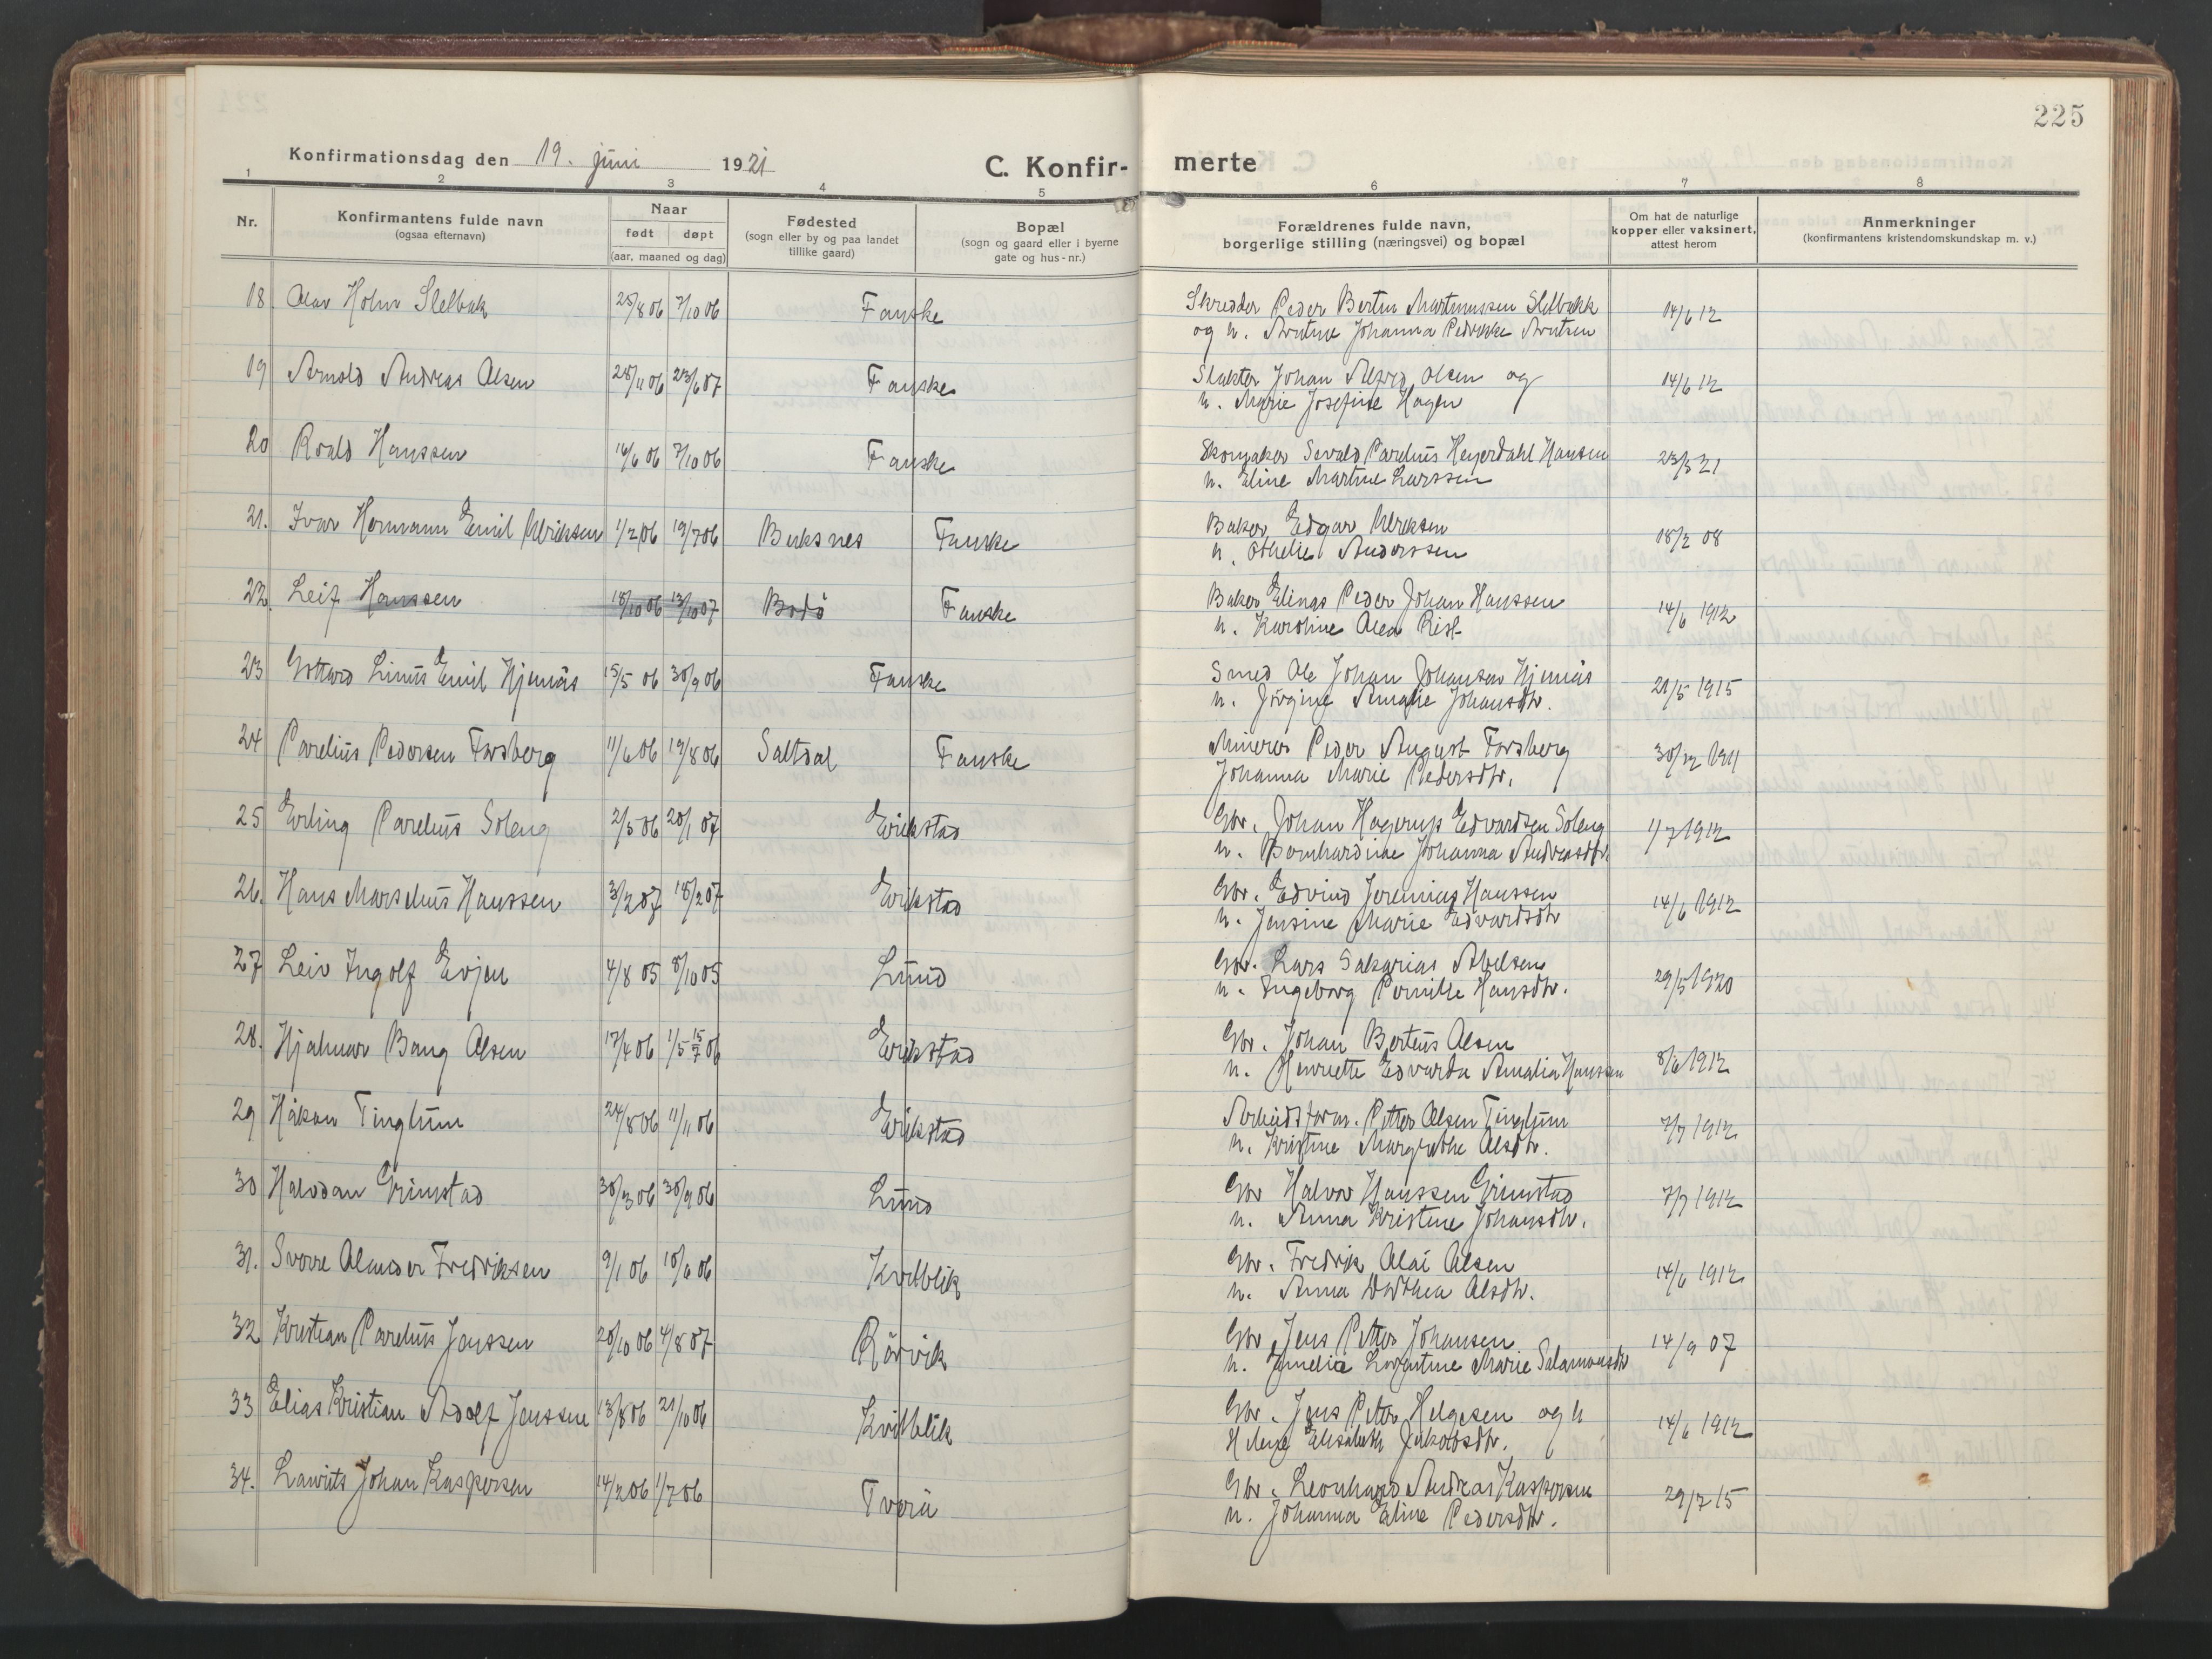 225
Konfirmationsdag den 19. juni 1921
C. Konfir-
merte
1 2 3 4 5 6 7 8
Nr.
Konfirmantens fulde navn
(ogsaa efternavn)
Naar
født døpt
(aar, maaned og dag)
Fødested
(sogn eller by og paa landet
tillike gaard)
Bopæl
(sogn og gaard eller i byerne
gate og hus-nr.)
Forældrenes fulde navn,
borgerlige stilling (næringsvei) og bopæl
Om hat de naturlige
kopper eller vaksinert,
attest herom
Anmerkninger
(konfirmantens kristendomskundskap m. v.)
18. Olav Holm 25/8 06 7/10 06 Fauske Skredder Peder Bertin Martinussen 14/6 12
og h. Johanna Pedrikke
19 Arnold Andreas Olsen 28/11 06 23/6 07 Fauske Slakter Johan Alfred Olsen og 14/6 12
h. Marie Josefine Hagen
20 Roald Hanssen 16/6 06 7/10 06 Fauske Skomaker Sevald Parelius Heyerdahl Hansen 23/3 21
h. Eline Martine Larssen
21. Ivar Hermann Emil Ulriksen 1/2 06 19/7 06 Buksnes Fauske Baker Edgar Ulriksen 18/2 08
h. Othelie Anderssen
22. Leif Hanssen 18/10 06 13/10 07 Bodö Fauske Baker Elinas Peder Johan Hanssen 14/6 1912
h. Karoline Olea Rist
23 Gottard Linus Emil Hjemås 15/5 06 30/9 06 Fauske Smed Ole Johan Johansen Hjemås 21/5 1915
h. Jörgine Amalie Johansdtr.
24 Parelius Pedersen Forsberg 11/6 06 19/8 06 Saltdal Fauske Minerer Peder August Forsberg 30/12 1911
Johanna Marie Pedersdtr.
25 Erling Parelius Soleng 2/5 06 20/1 07 Erikstad Gbr. Johan Hagerup Edvardsen Soleng 1/7 1912
h. Bernhardine Johanna Andreasdtr.
26. Hans Marselius Hanssen 3/2 07 18/2 07 Erikstad Gbr. Edvind Jeremias Hanssen 14/6 1912
h. Jensine Marie Edvardsdtr
27 Leiv Ingolf Evjen 4/8 05 8/10 05 Lund Gbr. Lars Sakarias Abelsen 29/5 1920
h. Ingeborg Pernille Hansdtr.
28. Hjalmar Bang Olsen 17/4 06 1/5 15/7 06 Erikstad Gbr. Johan Berteus Olsen 8/6 1912
h. Henriette Edvarda Amalia Hanssen
29 Håkon Tinglum 24/8 06 11/11 06 Erikstad Arbeidsform. Petter Olsen Tinglum 7/7 1912
h. Kristine Margrethe Olsdtr.
30 Halvdan Grimstad 30/3 06 30/9 06 Lund Gbr Halvor Hanssen Grimstad 7/7 1912
h. Anna Kristine Johansdtr.
31. Sverre Olander Fredriksen 9/1 06 10/6 06 Kvitblik Gbr. Fredrik Olai Olsen 14/6 1912
h. Anna Dorthea Olsdtr.
32 Kristian Parelius Jenssen 20/10 06 4/8 07 Rörvik Gbr Jens Petter Johansen 14/9 07
h. Marie Salamonsdtr
33 Elias Kristian Adolf Jenssen 13/8 06 21/10 06 Kvitblik Gbr. Jens Peter Helgesen og h 14/6 1912
Helene Elisabeth Jakobsdtr.
34. Laurits Johan Kaspersen 14/2 06 1/7 06 Tverå Gbr. Leonhard Andreas Kaspersen 29/7 15
h. Johanna Eline Pedersdtr.